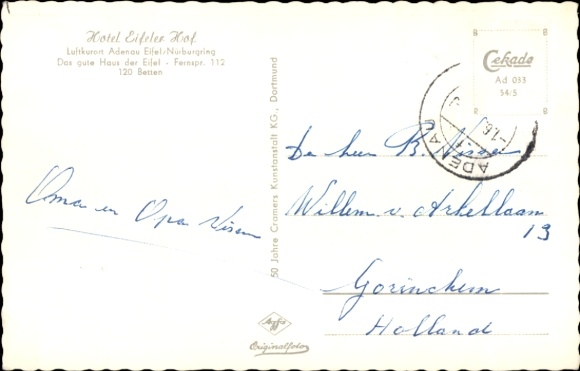 Hotel Eifeler Hof
Luftkurort Adenau Eifel-Nürburgring
Das gute Haus der Eifel - Fernspr. 112
120 Betten
Oma en Opa Visser
50 Jahre Cramers Kunstanstalt KG., Dortmund
Agfa
Originalfoto
Cekade
Ad 033
54/5
ADENAU
De heer B. Visser
Willem v. Arkellaan
13
Gorinchem
Holland